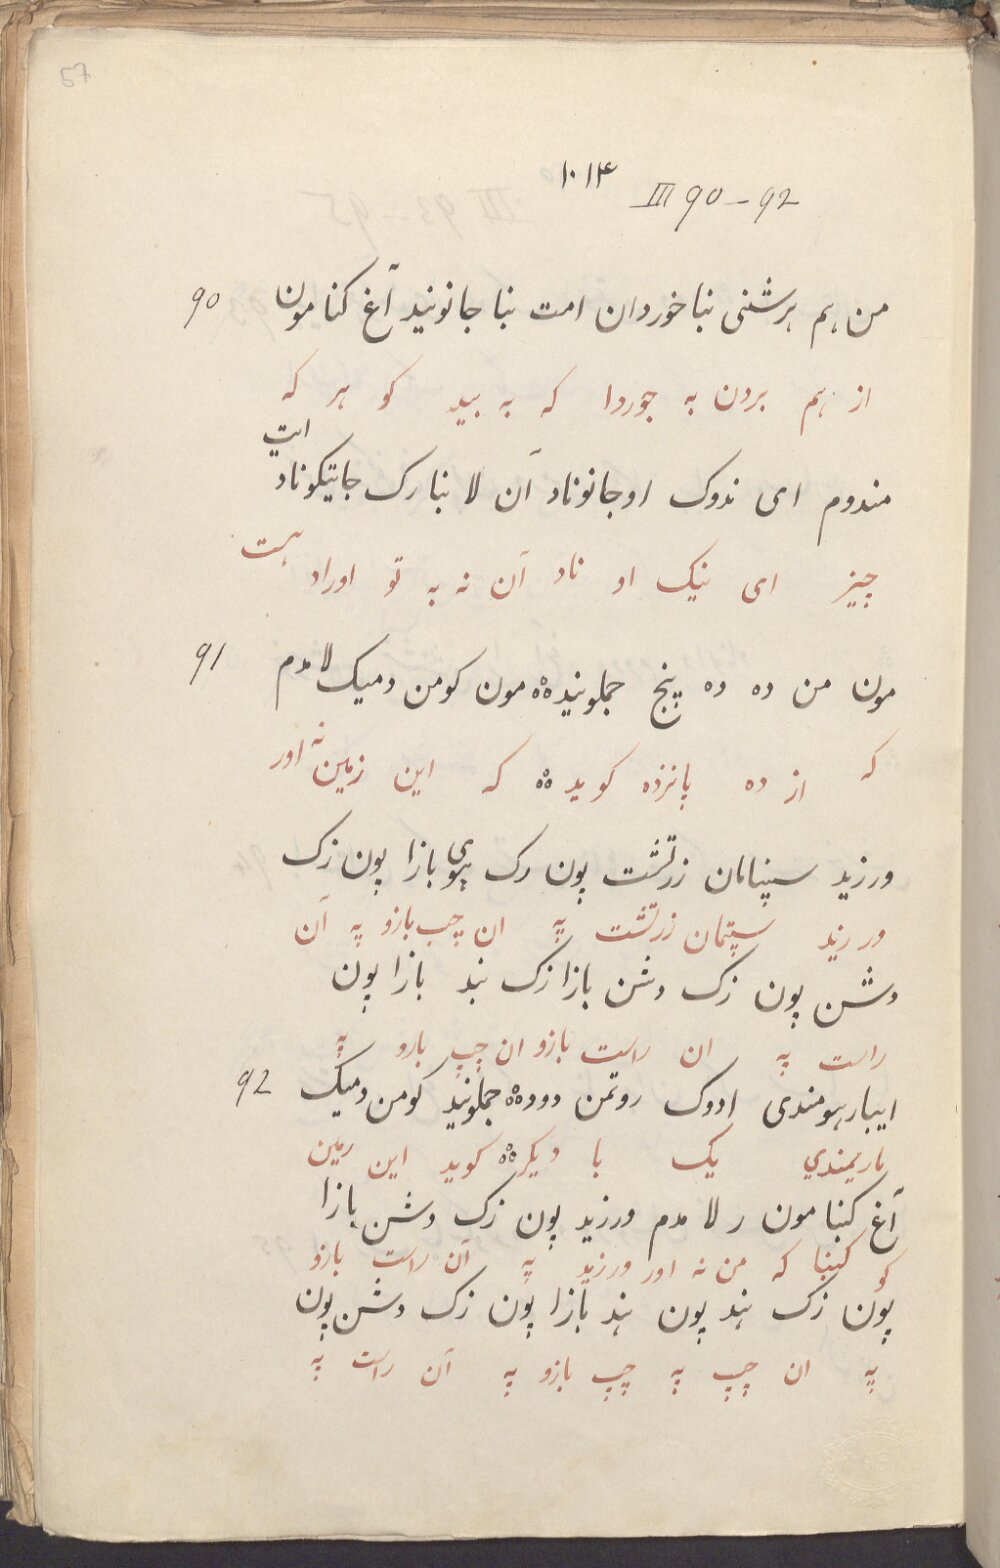 57
۱۰۱۴ III 90-92
90 من هم برشنی نبا خوردان امت نبا جانونید آغ کنا مون
از هم برون به جوردا که به بید کو هر که
ایت
مندوم ای ندوک او جانوناد آن لا نبا رک جاتیکوناد
هست
چیز ای نیک او ناد آن نه به تو اوراد
91 مون من ده ده پنج جملونیده مون کومن دمیک لا مدم
که از ده پانزده کویده که این زمین نه اور
ورزید سپنامان زرتشت پون رک پوی بازا پون زک
ور رزید سپتمان زرتشت په ان چپ بازو په آن
دشن پون زک دشن بازا زک بند بازا پون
راست په ان راست بازو ان چپ بارو په
92 ایبار هومندی ادوک روتمن دوده جملونید کومن دمیک
یاریمندی یک با دیکره کوید این رمین
آغ کنبا مون ر لا مدم ورزید پون زک دشن بازا
کو کنبا که من نه اور ورزید په آن راست بازو
پون زک هند پون هند بازا پون زک دشن پون
په ان چپ په چپ بازو په آن راست په